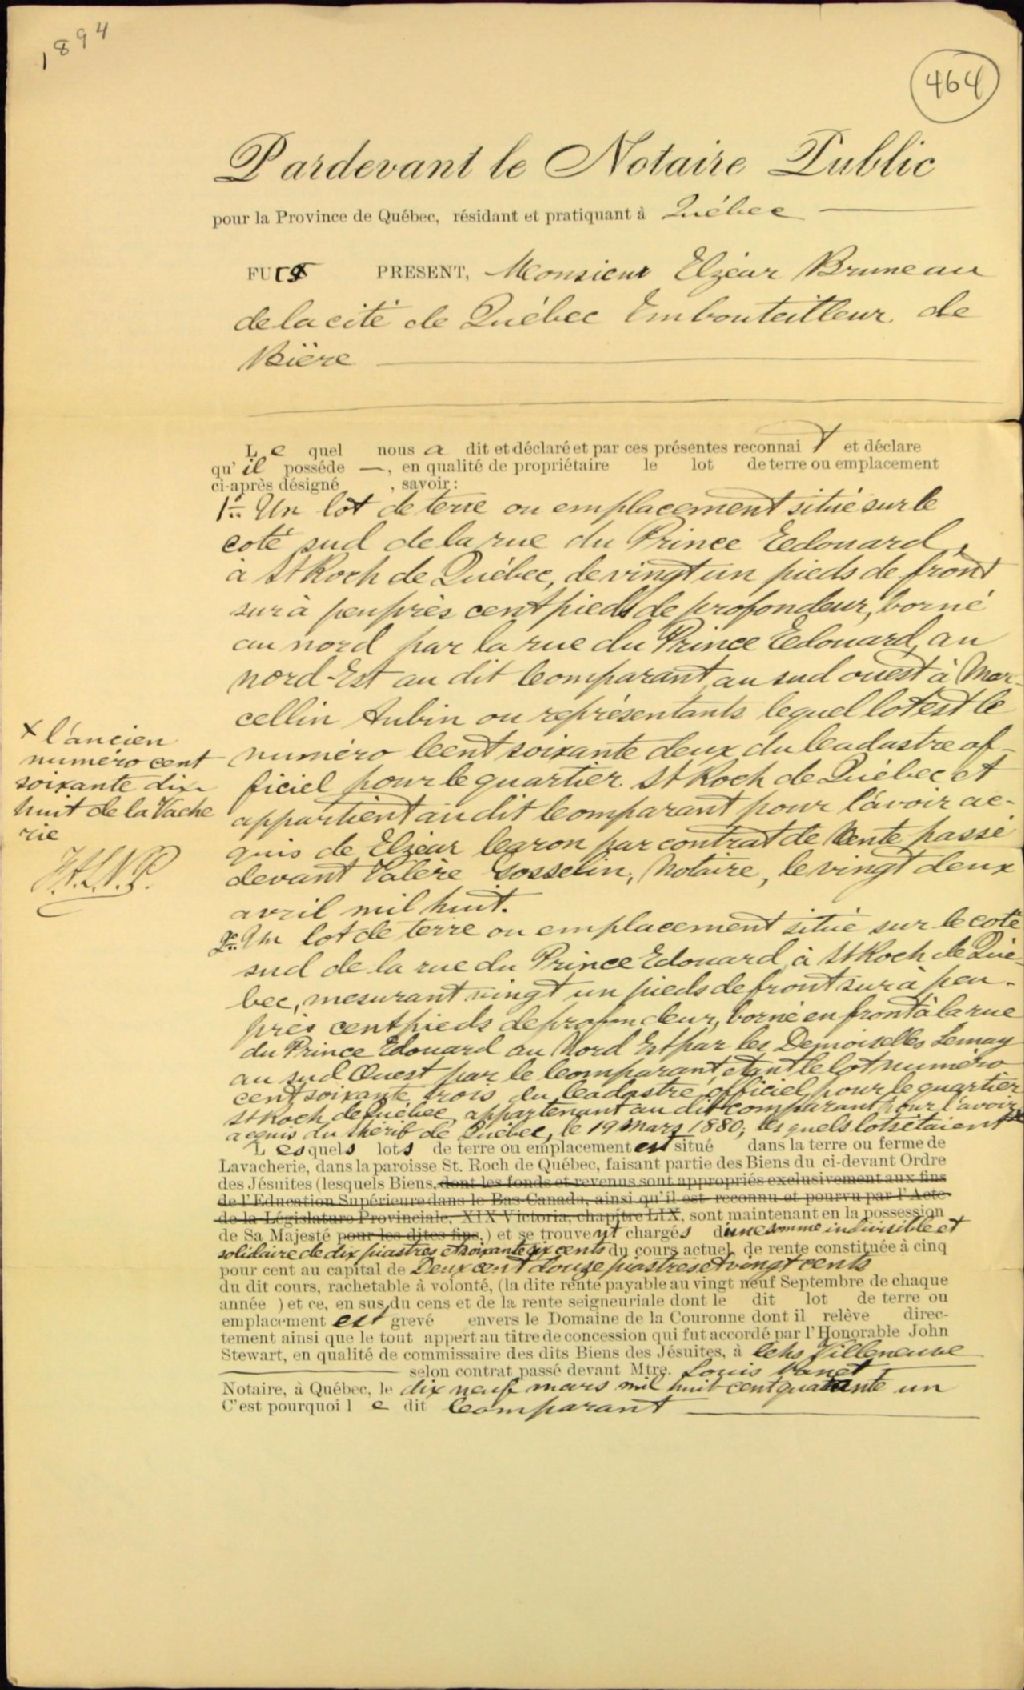 1894
464
Pardevant le Notaire Public
pour la Province de Québec, résidant et pratiquant à Québec
FUT PRESENT, Monsieur Elzéar Bruneau
de la cité de Québec Embouteilleur de
Bière
Le quel nous a dit et déclaré et par ces présentes reconnait et déclare
qu'il posséde —, en qualité de propriétaire le lot de terre ou emplacement
ci-après désigné , savoir:
1° Un lot de terre ou emplacement situé sur le
coté sud de la rue du Prince Edouard,
à St Roch de Québec, de vingt un pieds de front
sur à peu près cent pieds de profondeur, borné
au nord par la rue du Prince Edouard, au
nord-Est au dit Comparant, au sud ouest à Mar-
cellin Aubin ou représentants lequel lot est le
numéro Cent soixante deux du Cadastre of-
ficiel pour le quartier St Roch de Québec et
appartient au dit Comparant pour l'avoir ac-
quis de Elzéar Caron par contrat de Vente passé
devant Valère Gosselin, Notaire, le vingt deux
avril mil huit.
x l'ancien
numéro cent
soixante dix-
huit de la Vache
rie
2° Un lot de terre ou emplacement situé sur le coté
sud de la rue du Prince Edouard, à St Roch de Qué-
bec, mesurant vingt un pieds de front sur à peu-
près cent pieds de profondeur, borné en front à la rue
du Prince Edouard au Nord Est par les Demoiselles Lemay
au sud Ouest par le Comparant etant le lot numéro
cent soixante trois du Cadastre officiel pour le quartier
St Roch de Québec, appartenant au dit Comparant pour l'avoir
acquis du Shérif de Québec, le 19 Mars 1880; lesquels lots étaient x
Lesquels lots de terre ou emplacement est situé dans la terre ou ferme de
Lavacherie, dans la paroisse St. Roch de Québec, faisant partie des Biens du ci-devant Ordre
des Jésuites (lesquels Biens, dont les fonds et revenus sont appropriés exclusivement aux fins
de l'Education Supérieure dans le Bas-Canada, ainsi qu'il est reconnu et pourvu par l'Acte
de la Législature Provinciale, XIX Victoria, chapitre LIX, sont maintenant en la possession
de Sa Majesté pour les dites fins,) et se trouvent chargés d'une somme indivisible et
solidaire de dix piastres et soixante dix cents du cours actuel, de rente constituée à cinq
pour cent au capital de Deux cent douze piastres et vingt cents
du dit cours, rachetable à volonté, (la dite rente payable au vingt neuf Septembre de chaque
année ) et ce, en sus du cens et de la rente seigneuriale dont le dit lot de terre ou
emplacement est grevé envers le Domaine de la Couronne dont il relève direc-
tement ainsi que le tout appert au titre de concession qui fut accordé par l'Honorable John
Stewart, en qualité de commissaire des dits Biens des Jésuites, à Chs Villeneuve
selon contrat passé devant Mtre. Louis Panet
Notaire, à Québec, le dix neuf mars mil huit cent quarante un
C'est pourquoi le dit Comparant